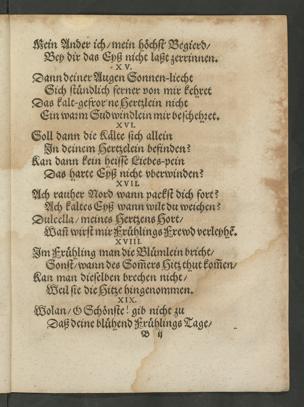 Mein Ander ich/ mein höchst Begierd/
Bey dir das Eyß nicht laßt zerrinnen.
XV.
Dann deiner Augen Sonnen-liecht
Sich stündlich ferner von mir kehret
Das kalt-gefror'ne Hertzlein nicht
Ein warm Sudwindlein mir bescheret.
XVI.
Soll dann die Kälte sich allein
In deinem Hertzelein befinden?
Kan dann kein heisse Liebes-pein
Das harte Eyß nicht vberwinden?
XVII.
Ach rauher Nord wann packst dich fort?
Ach kaltes Eyß wann wilt du weichen?
Dulcella/ meines Hertzens Hort/
Wañ wirst mir Frühlings Frewd verleyhẽ.
XVIII.
Im Frühling man die Blümlein bricht/
Sonst/ wann des Som̃ers Hitz thut kom̃en/
Kan man dieselben brechen nicht/
Weil sie die Hitze hingenommen.
XIX.
Wolan/ O Schönste! gib nicht zu
Daß deine blühend Frühlings Tage/
B ij